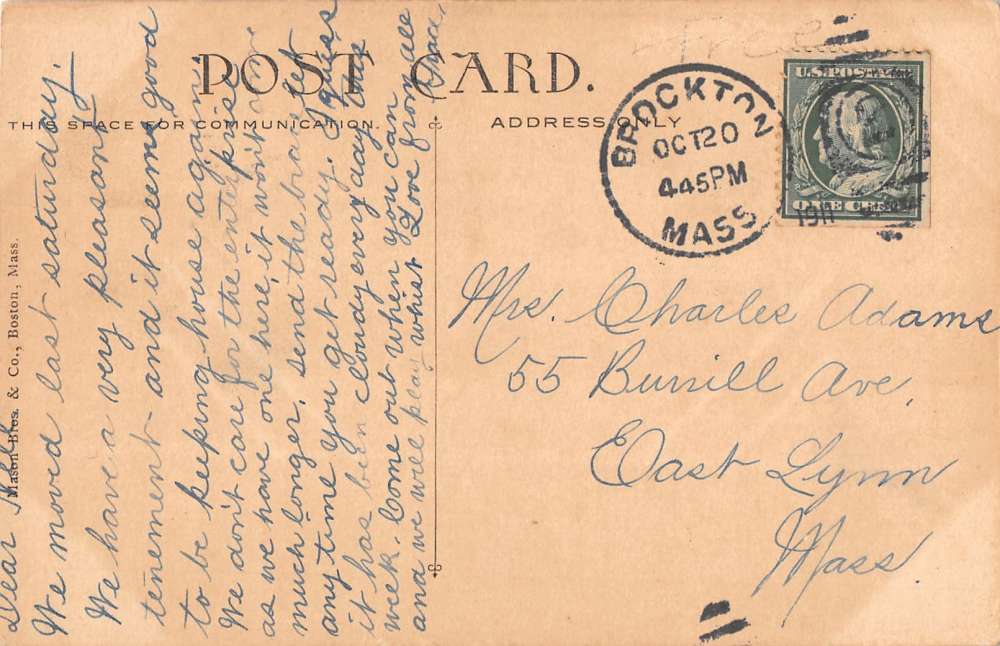 Free
POST CARD.
THIS SPACE FOR COMMUNICATION.
ADDRESS ONLY
BROCKTON
OCT 20
445PM
1911
MASS
U.S. POSTAGE
Mrs. Charles Adams
55 Burrill Ave.
East Lynn
Mass
Mason Bros. & Co., Boston, Mass.
Dear
We moved last saturday.
We have a very pleasant
tenement and it seems good
to be keeping house again.
We don't care for the enterprise
as we have one here, it won't
much longer. send the brass set
any time you get ready. I guess
it has been cloudy every day this
week. Come out when you can
and we will play whist Love from all